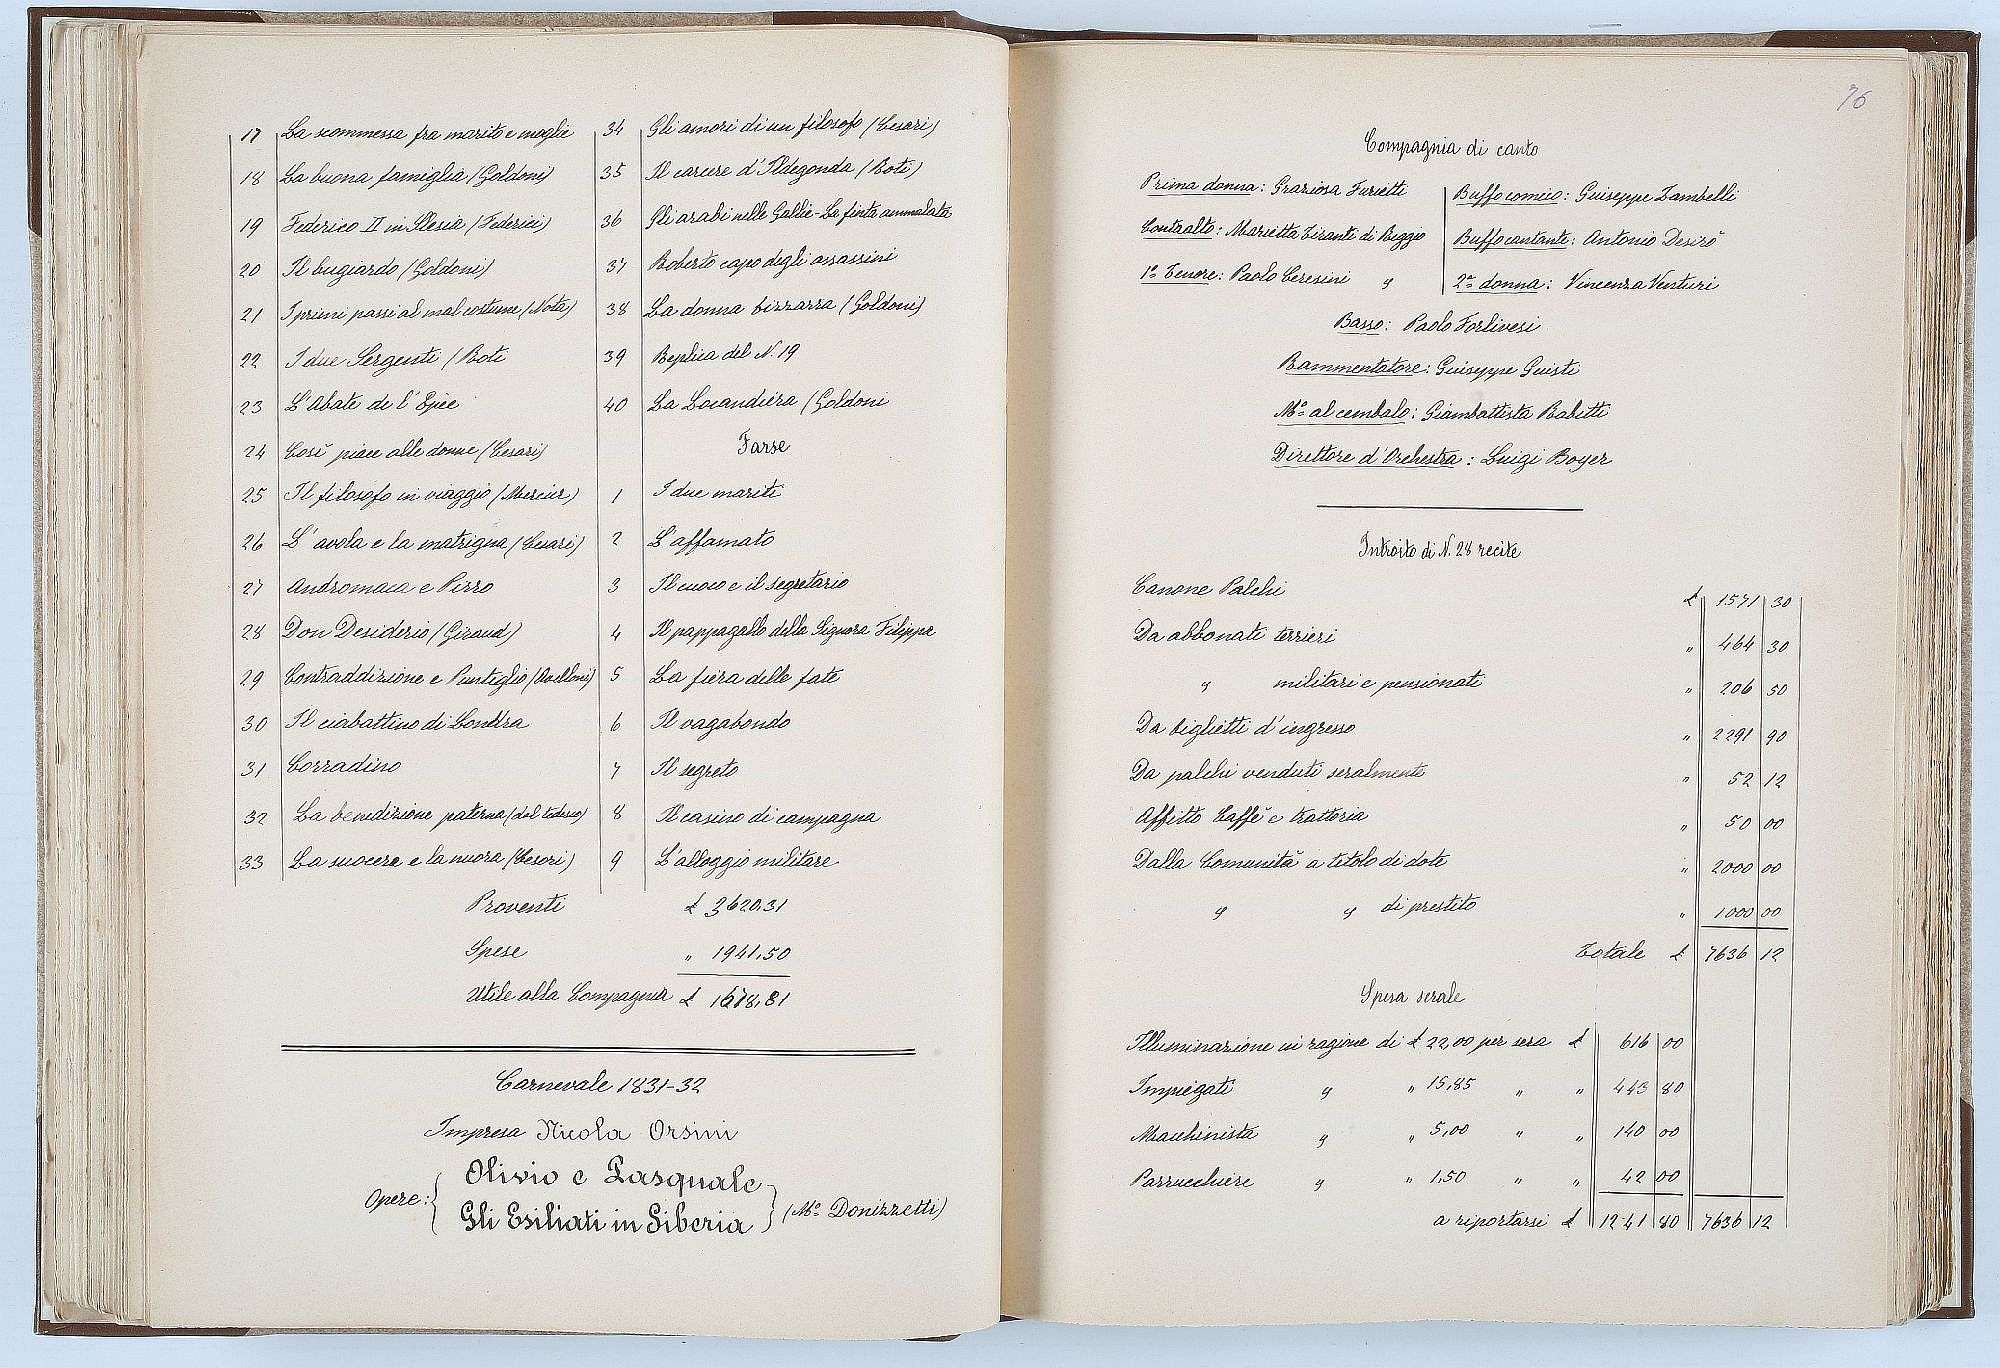 17 La scommessa fra marito e moglie
18 La buona famiglia (Goldoni)
19 Federico II in Slesia (Federici)
20 Il bugiardo (Goldoni)
21 I primi passi al mal costume (Nota)
22 I due Sergenti (Roti
23 L'Abate de l'Epèe
24 Così piace alle donne (Cesari)
25 Il filosofo in viaggio (Mercier)
26 L'avola e la matrigna (Cesari)
27 Andromaca e Pirro
28 Don Desiderio (Giraud)
29 Contraddizione e Puntiglio (Avelloni)
30 Il ciabattino di Londra
31 Corradino
32 La benedizione paterna (dal tedesco)
33 La suocera e la nuora (Cesari)
34 Gli amori di un filosofo (Cesari)
35 Il carcere d'Ildegonda (Roti)
36 Gli arabi nelle Gallie - La finta ammalata
37 Roberto capo degli assassini
38 La donna bizzarra (Goldoni)
39 Replica del N. 19
40 La Locandiera (Goldoni
Farse
1 I due mariti
2 L'affamato
3 Il cuoco e il segretario
4 Il pappagallo della Signora Filippa
5 La fiera delle fate
6 Il vagabondo
7 Il segreto
8 Il casino di campagna
9 L'alloggio militare
Proventi £ 3620.31
Spese " 1941.50
Utile alla Compagnia £ 1678,81
Carnevale 1831-32
Impresa Nicola Orsini
Opere: { Olivio e Pasquale
Gli Esiliati in Siberia } (Mo Donizzetti)
76
Compagnia di canto
Prima donna: Graziosa Furietti
Contralto: Marietta Tiranti di Reggio
1o Tenore: Paolo Ceresini "
Buffo comico: Guiseppe Zambelli
Buffo cantante: Antonio Desirò
2a donna: Vincenza Venturi
Basso: Paolo Forlivesi
Rammentatore: Guiseppe Guisti
Mo al cembalo: Giambattista Rabitti
Direttore d'Orchestra: Luigi Boyer
Introito di N. 28 recite
Canone Palchi £ 1571 30
Da abbonati terrieri " 464 30
" militari e pensionati " 206 50
Da biglietti d'ingresso " 2291 90
Da palchi venduti seralmente " 52 12
Affitto Caffè e trattoria " 50 00
Dalla Comunità a titolo di dote " 2000 00
" " di prestito " 1000 00
Totale £ 7636 12
Spesa serale
Illuminazione in ragione di £ 22,00 per sera £ 616 00
Impiegati " " 15,85 " " 443 80
Macchinista " " 5,00 " " 140 00
Parrucchiere " " 1,50 " " 42 00
a riportarsi £ 1241 80 7636 12